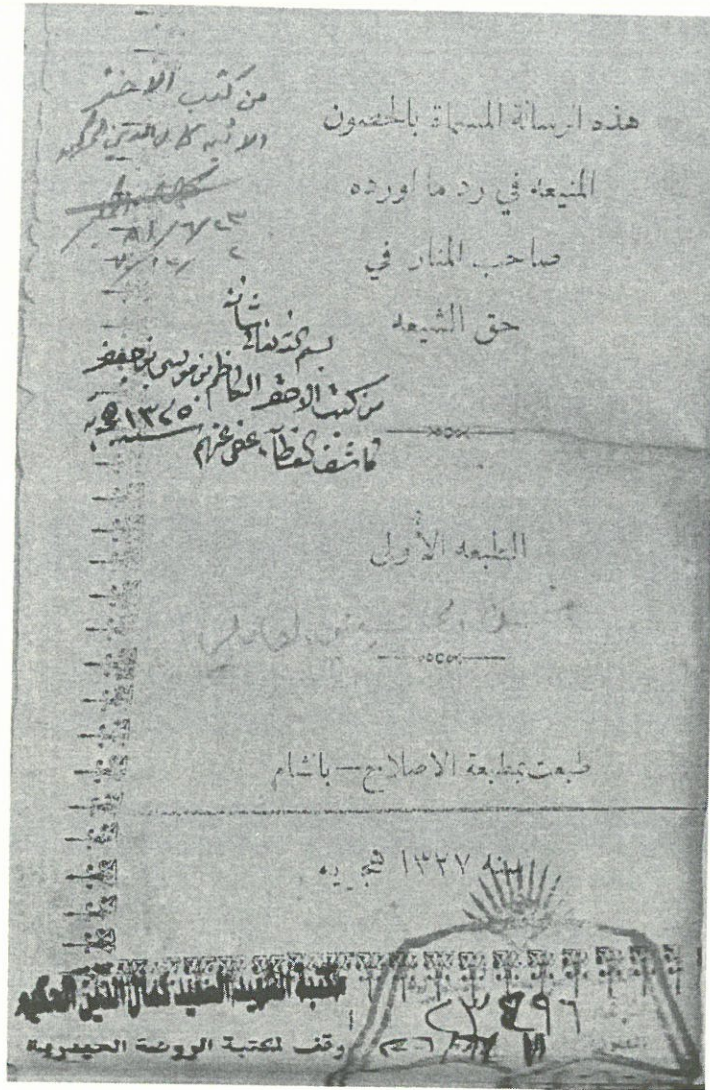 هذه الرسالة المسماة بالحصون
المنيعه في رد ما اورده
صاحب المنار في
حق الشيعه
من كتب الاحقر
بسم الله تعالى شأنه
من كتب الاحقر الكاظم بن موسى بن جعفر
كاشف الغطآء عفي عنهم سنه ١٣٢٥
الطبعه الأول
طبعت بمطبعة الاصلاح — بالشام
سنه ١٣٢٧ هجريه
مكتبة الشهيد السيد كمال الدين الحكيم
وقف لمكتبة الروضة الحيدرية